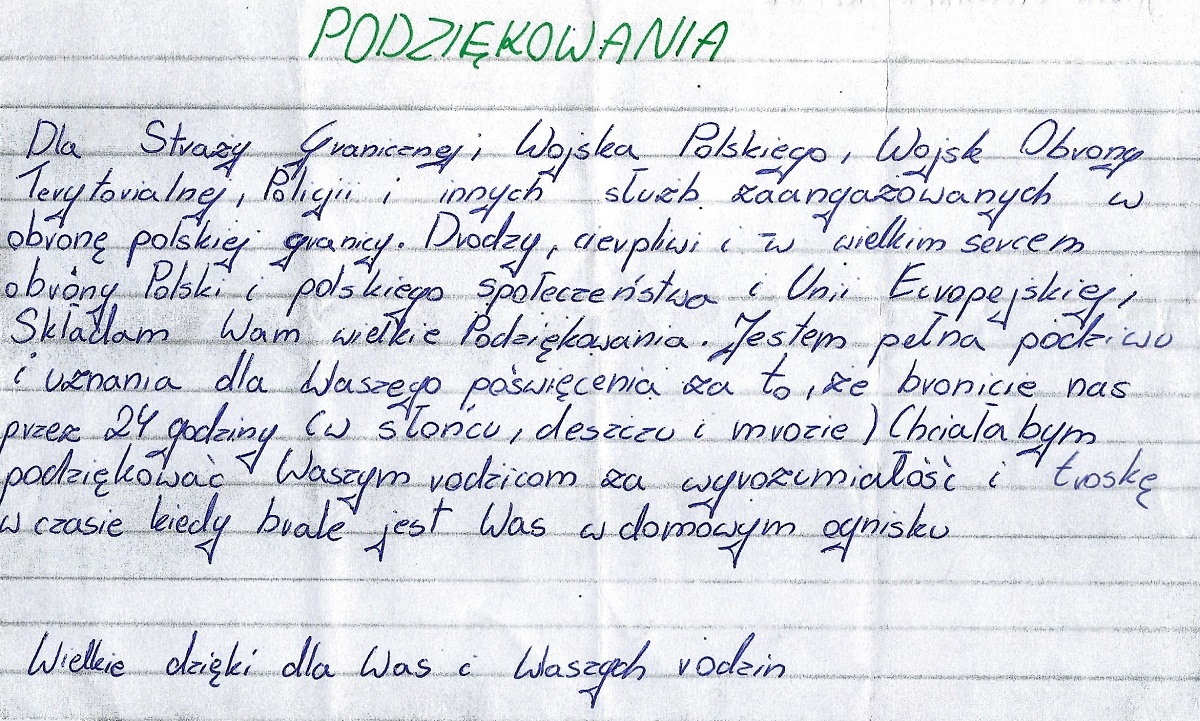 PODZIĘKOWANIA
Dla Straży Granicznej, Wojska Polskiego, Wojsk Obrony
Terytorialnej, Policji i innych służb zaangażowanych w
obronę polskiej granicy. Drodzy, cierpliwi i w wielkim sercem
obróny Polski i polskiego społeczeństwa i Unii Europejskiej,
Składam Wam wielkie Podziękowania. Jestem pełna podziwu
i uznania dla Waszego poświęcenia za to, że bronicie nas
przez 24 godziny (w słońcu, deszczu i mrozie) Chciałabym
podziękować Waszym rodzicom za wyrozumiałość i troskę
w czasie kiedy brak jest Was w domowym ognisku
Wielkie dzięki dla Was i Waszych rodzin